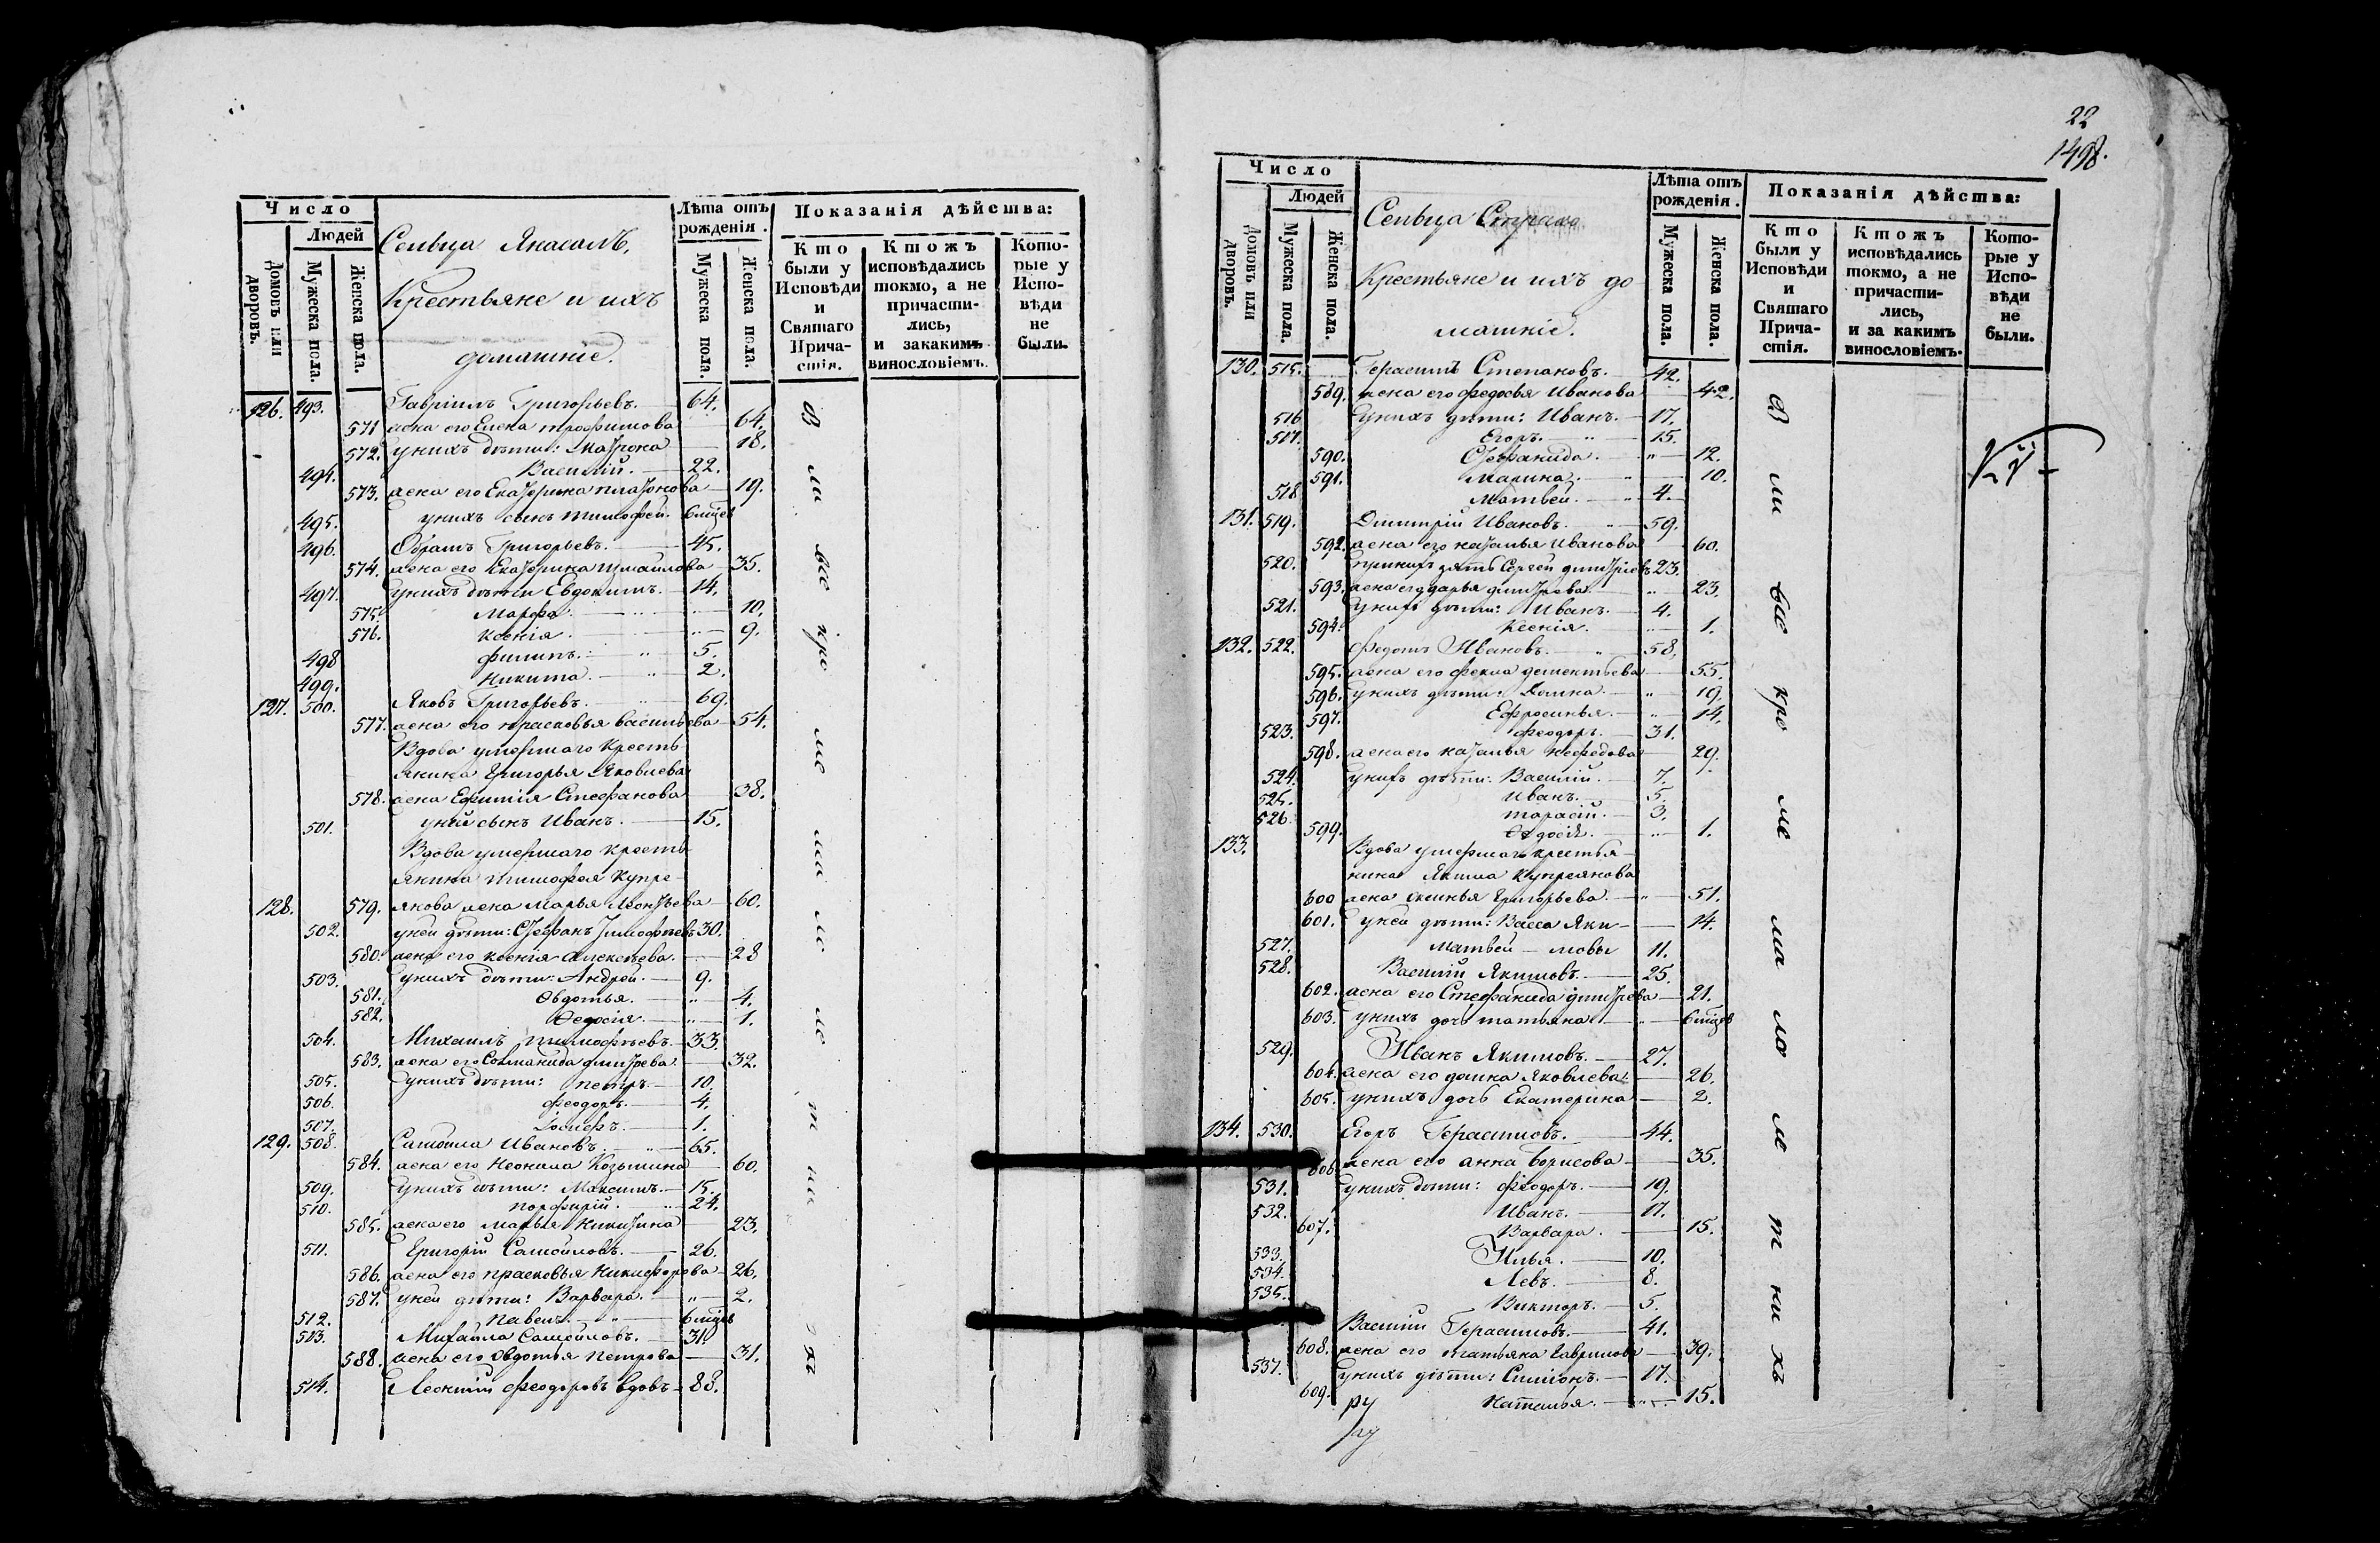 Число
Людей
Домовъ или дворовъ.
Мужеска пола.
Женска пола.
Сельца
Крестьяне и ихъ
домашніе.
Лѣта отъ рожденія.
Мужеска пола.
Женска пола.
Показанія дѣйства:
Кто были у Исповѣди и Святаго Причастія.
Ктожъ исповѣдались токмо, а не причастились, и закакимъ винословіемъ.
Которые у Исповѣди не были.
126. 493. Гавріилъ Григорьевъ. 64.
571 жена его Елена трофимова 64.
572. У нихъ дѣти: Матрона 18.
494. Василій. 22.
573. жена его Екатерина платонова 19.
495. у нихъ сынъ тимофей. 6 мцев
496. Григорьевъ. 45.
574. жена его Екатерина 35.
497. У нихъ дѣти Евдокимъ. 14.
575. Марфа. 10.
576. Ксенія. 9.
498 филипъ. 5.
499. Никита. 2.
127. 500. Яковъ Григорьевъ. 69.
577. жена его прасковья васильева 54.
Вдова умершаго кресть
янина Григорья Яковлева
578. жена Ефимія Стефанова 38.
501. у ней сынъ Иванъ. 15.
Вдова умершаго кресть
янина тимофея Купре
128. 579. янова жена Марья Леонтьева 60.
502. у ней дѣти: Стефанъ тимофѣевъ 30.
580. жена его ксенія алексѣева. 28
503. У нихъ дѣти: Андрей. 9.
581. Овдотья. 4.
582. Ѳедосія. 1.
504. Михаилъ тимофѣевъ. 33
583. жена его дмитрева. 32.
505. У нихъ дѣти: петръ. 10.
506. феодоръ. 4.
507. Іосифъ. 1.
129. 508. Самойла Ивановъ. 65.
584. жена его Неонила Козьмина 60.
509. У нихъ дѣти: Максимъ. 15.
510. порфирій. 24.
585. жена его Марья никитина 23.
511. Григорій Самойловъ. 26.
586. жена его прасковья никифорова 26.
587. у ней дѣти: Варвара. 2.
512. павелъ. 6 мцев
513. Михайла Самойловъ. 31
588. жена его Овдотья петрова 31.
514. феодоровъ вдовъ 88.
22
1498.
Число
Людей
Домовъ или дворовъ.
Мужеска пола.
Женска пола.
Сельца
Крестьяне и ихъ до
машніе.
Лѣта отъ рожденія.
Мужеска пола.
Женска пола.
Показанія дѣйства:
Кто были у Исповѣди и Святаго Причастія.
Ктожъ исповѣдались токмо, а не причастились, и за какимъ винословіемъ.
Которые у Исповѣди не были.
130. 515. Герасимъ Степановъ. 42.
589. жена его федосья Иванова 42.
516 У нихъ дѣти: Иванъ. 17.
517. Егоръ. 15.
590. Стефанида. 12.
591. Марина. 10.
518 Матвей. 4.
131. 519. Димитрій Ивановъ. 59.
592. жена его наталья Иванова 60.
520. при нихъ зять Сергей димитріевъ 23.
593. жена его дарья дмитрева. 23.
521. У нихъ дѣти: Иванъ. 4.
594. Ксенія. 1.
132. 522. Федотъ Ивановъ. 58.
595. жена его фекла дементьева 55.
596. У нихъ дѣти: 19.
597. Ефросинья. 14.
523. феодоръ. 31.
598. жена его наталья нефедова 29.
524. У нихъ дѣти: Василій. 7.
525. Иванъ. 5.
526. тарасій. 3.
599. Ѳедосія. 1.
133. Вдова умершаго крестья
нина Якима Купреянова
600 жена Григорьева. 51.
601. У ней дѣти: Васса Яки- 14.
527. Матвей мовы 11.
528. Василій Якимовъ. 25.
602. жена его Стефанида дмитрева 21.
603. у нихъ дочь татьяна 6 мцев
529. Иванъ Якимовъ. 27.
604. жена его домна Яковлева. 26.
605. у нихъ дочь Екатерина 2.
134. 530. Егоръ Герасимовъ. 44.
606 жена его анна борисова 35.
531. У нихъ дѣти: феодоръ. 19.
532. Иванъ. 17.
607. Варвара. 15.
533. Илья. 10.
534. Левъ. 8.
535. Викторъ. 5.
Василій Герасимовъ. 41.
608. жена его татьяна Гаврилова 39.
537. У нихъ дѣти: Симіонъ. 17.
609. Наталья. 15.
ру